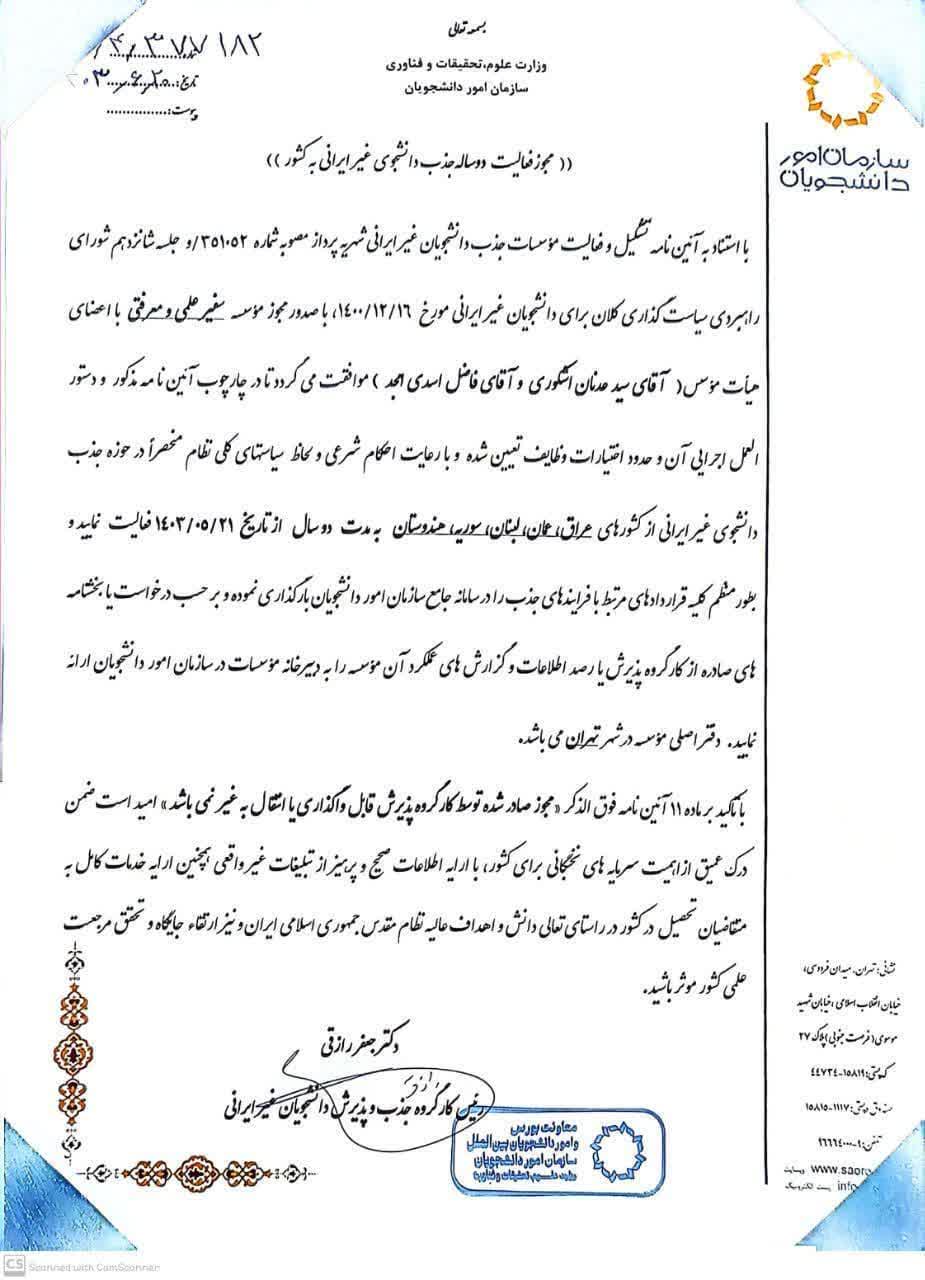 بسمه تعالی
وزارت علوم، تحقیقات و فناوری
سازمان امور دانشجویان
تاریخ:
پیوست:
سازمان امور
دانشجویان
(( مجوز فعالیت دوساله جذب دانشجوی غیر ایرانی به کشور ))
با استناد به آئین نامه تشکیل و فعالیت مؤسسات جذب دانشجویان غیر ایرانی شهریه پرداز مصوبه شماره ۳۵۱۰۵۲/و جلسه شانزدهم شورای
راهبردی سیاست گذاری کلان برای دانشجویان غیر ایرانی مورخ ۱۴۰۰/۱۲/۱۶، با صدور مجوز مؤسسه سفیر علمی و معرفتی با اعضای
هیأت مؤسس ( آقای سید عدنان اشکوری و آقای فاضل اسدی امجد ) موافقت می گردد تا در چارچوب آئین نامه مذکور و دستور
العمل اجرایی آن و حدود اختیارات وظایف تعیین شده و با رعایت احکام شرعی و لحاظ سیاستهای کلی نظام منحصراً در حوزه جذب
دانشجوی غیر ایرانی از کشورهای عراق، عمان، لبنان، سوریه، هندوستان به مدت دو سال از تاریخ ۱۴۰۳/۰۵/۲۱ فعالیت نمایید و
بطور منظم کلیه قراردادهای مرتبط با فرایندهای جذب را در سامانه جامع سازمان امور دانشجویان بارگذاری نموده و بر حسب درخواست یا بخشنامه
های صادره از کارگروه پذیرش یا رصد اطلاعات و گزارش های عملکرد آن مؤسسه را به دبیرخانه مؤسسات در سازمان امور دانشجویان ارائه
نمایید. دفتر اصلی مؤسسه در شهر تهران می باشد.
با تأکید بر ماده ۱۱ آئین نامه فوق الذکر «مجوز صادر شده توسط کارگروه پذیرش قابل واگذاری یا انتقال به غیر نمی باشد» امید است ضمن
درک عمیق از اهمیت سرمایه های نخبگانی برای کشور، با ارایه اطلاعات صحیح و پرهیز از تبلیغات غیر واقعی همچنین ارایه خدمات کامل به
متقاضیان تحصیل در کشور در راستای تعالی دانش و اهداف عالیه نظام مقدس جمهوری اسلامی ایران و نیز ارتقاء جایگاه و تحقق مرجعیت
علمی کشور موثر باشید.
دکتر جعفر رازقی
رئیس کارگروه جذب و پذیرش دانشجویان غیر ایرانی
معاونت بورس
و امور دانشجویان بین الملل
سازمان امور دانشجویان
نشانی: تهران، میدان فردوسی،
خیابان انقلاب اسلامی، خیابان شهید
موسوی (فرصت جنوبی) پلاک ۲۷
کدپستی: ۱۵۸۱۹-۴۴۷۳۴
صندوق پستی: ۱۱۱۷-۱۵۸۱۵
وبسایت www.saorg
پست الکترونیک info
CS Scanned with CamScanner